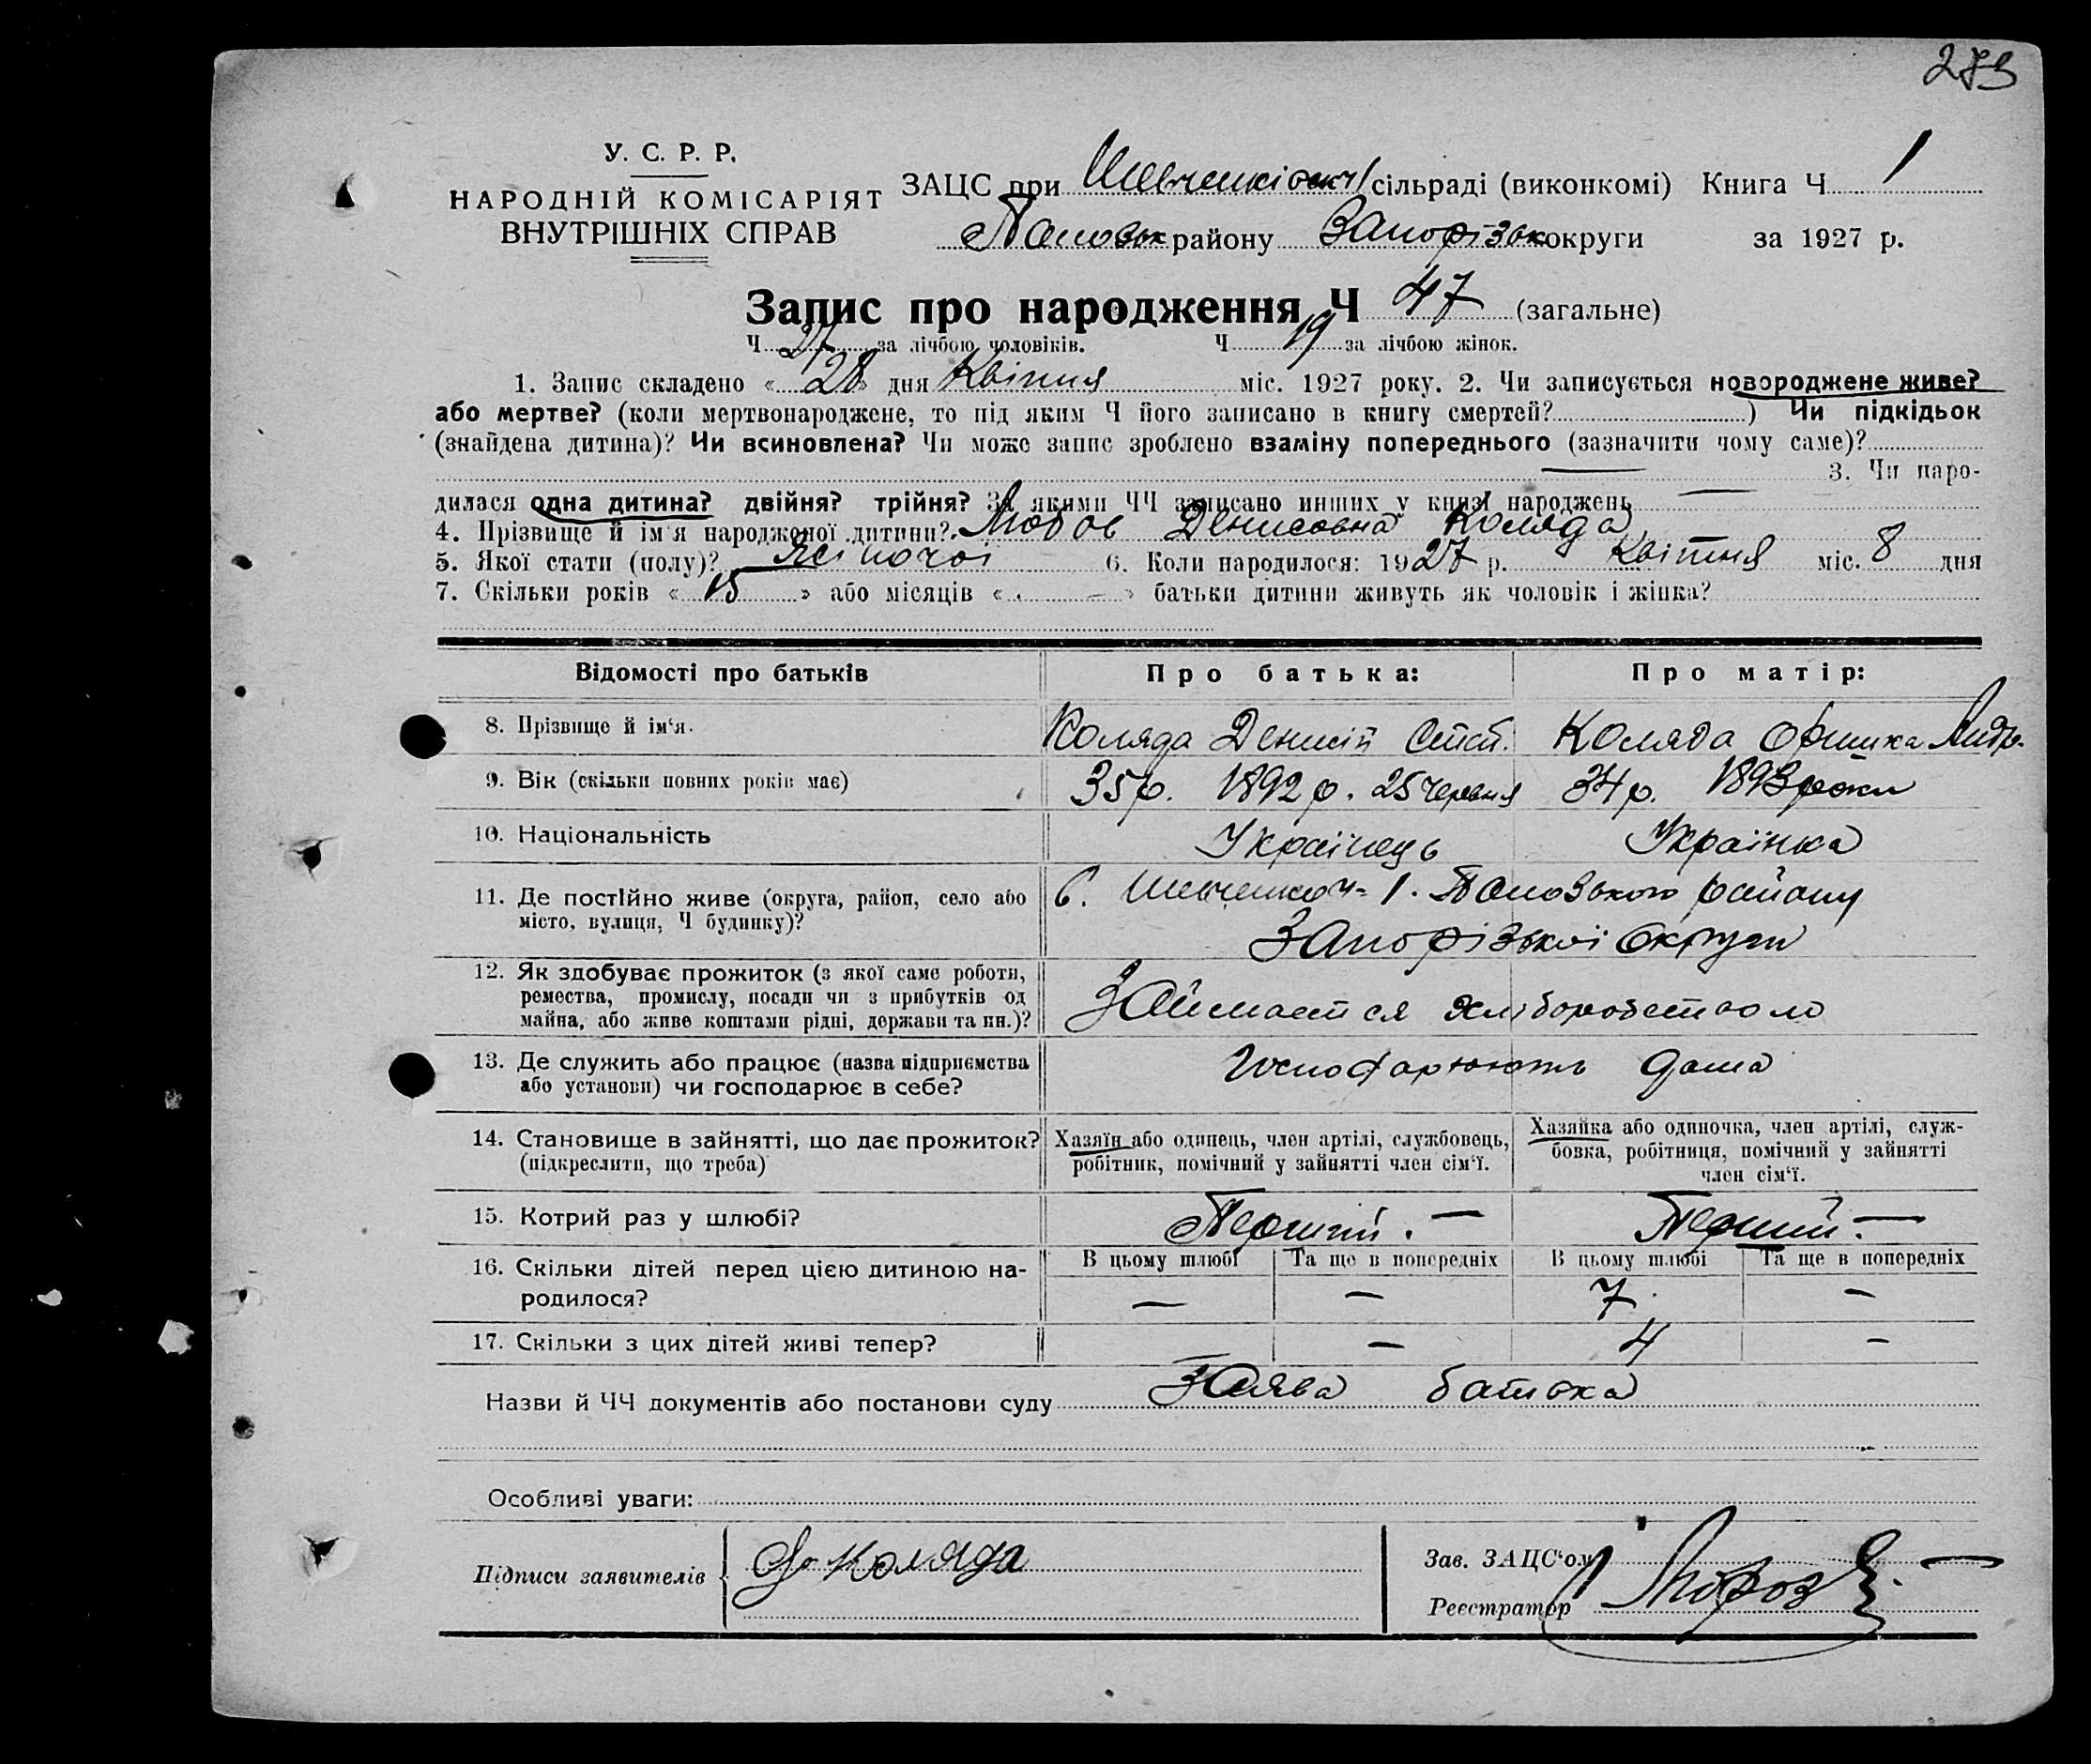 273
У. С. Р. Р.
НАРОДНІЙ КОМІСАРІЯТ
ВНУТРІШНІХ СПРАВ
ЗАЦС при Шевченківськ 1 сільраді (виконкомі) Книга Ч 1
району Запорізьк округи за 1927 р.
Запис про народження Ч 47 (загальне)
Ч 27 за лічбою чоловіків. Ч 19 за лічбою жінок.
1. Запис складено « 28 » дня Квітня міс. 1927 року. 2. Чи записується новороджене живе?
або мертве? (коли мертвонароджене, то під яким Ч його записано в книгу смертей? ) Чи підкідьок
(знайдена дитина)? Чи всиновлена? Чи може запис зроблено взаміну попереднього (зазначити чому саме)?
— 3. Чи наро-
дилася одна дитина? двійня? трійня? За якими ЧЧ записано инших у книзі народжень —
4. Прізвище й ім'я народженої дитини? Любов Денисовна Коляда
5. Якої стати (полу)? жіночої 6. Коли народилося: 1927 р. Квітня міс. 8 дня
7. Скільки років « 15 » або місяців « — » батьки дитини живуть як чоловік і жінка?
Відомості про батьків Про батька: Про матір:
8. Прізвище й ім'я. Коляда Денисій Степ. Коляда Оришка Андр.
9. Вік (скільки повних років має) 35 р. 1892 р. 25 червня 34 р. 1893 роки
10. Національність Українець Українка
11. Де постійно живе (округа, район, село або
місто, вулиця, Ч будинку)?
С. району
Запорізької Округи
12. Як здобуває прожиток (з якої саме роботи,
ремества, промислу, посади чи з прибутків од
майна, або живе коштами рідні, держави та ин.)?
Займається хліборобством
13. Де служить або працює (назва підприємства
або установи) чи господарює в себе?
Господарюють дома
14. Становище в зайнятті, що дає прожиток?
(підкреслити, що треба)
Хазяїн або одинець, член артілі, службовець,
робітник, помічний у зайнятті член сім'ї.
Хазяйка або одиночка, член артілі, служ-
бовка, робітниця, помічний у зайнятті
член сім'ї.
15. Котрий раз у шлюбі? Перший. — Перший. —
16. Скільки дітей перед цією дитиною на-
родилося?
В цьому шлюбі Та ще в попередніх В цьому шлюбі Та ще в попередніх
— — 7 —
17. Скільки з цих дітей живі тепер? — — 4 —
Назви й ЧЧ документів або постанови суду Заява батька
Особливі уваги:
Підписи заявителів Коляда
Зав. ЗАЦС'ом
Реєстратор Мороз